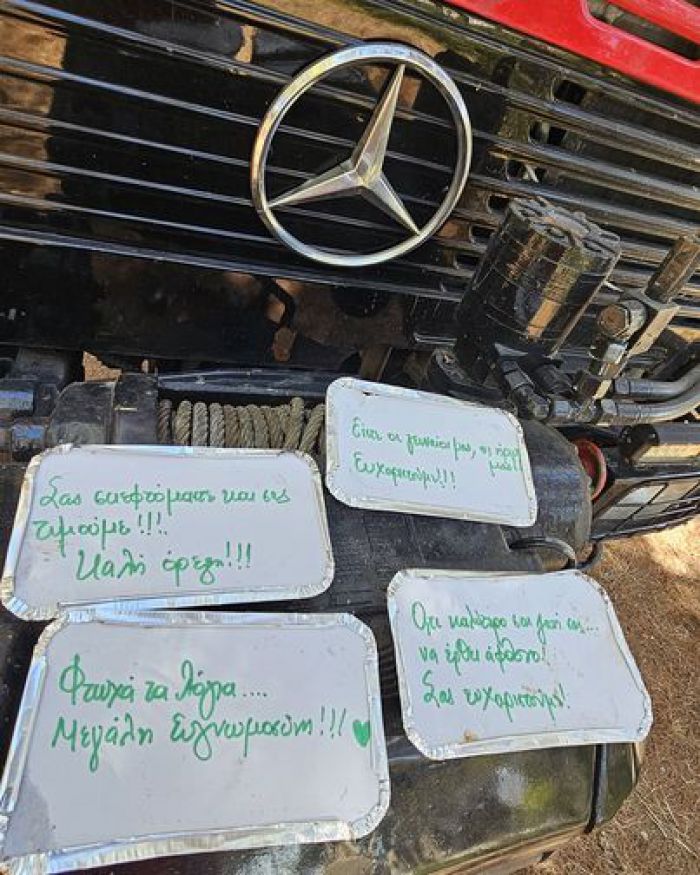 Είστε οι γενναίοι μας, οι ήρωές
μας!!
Ευχαριστούμε!!!
Σας σκεφτόμαστε και σας
τιμούμε!!!.
Καλή όρεξη!!!
Ότι καλύτερο και γιατί σας...
να έρθει άφθονο!
Σας ευχαριστούμε!
Φτωχά τα λόγια....
Μεγάλη Ευγνωμοσύνη!!!